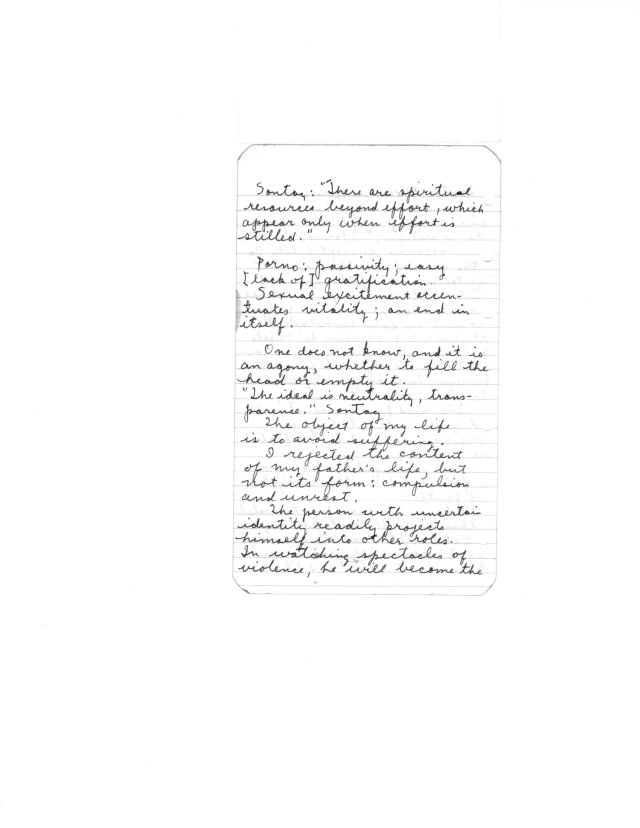 Sontag: "There are spiritual
resources beyond effort, which
appear only when effort is
stilled."
Porno: passivity; easy
[lack of] gratification.
Sexual excitement accen-
tuates vitality; an end in
itself.
One does not know, and it is
an agony, whether to fill the
head or empty it.
"The ideal is neutrality, trans-
parence." Sontag
The object of my life
is to avoid suffering.
I rejected the content
of my father's life, but
not its form: compulsion
and unrest.
The person with uncertain
identity readily projects
himself into other roles.
In watching spectacles of
violence, he will become the